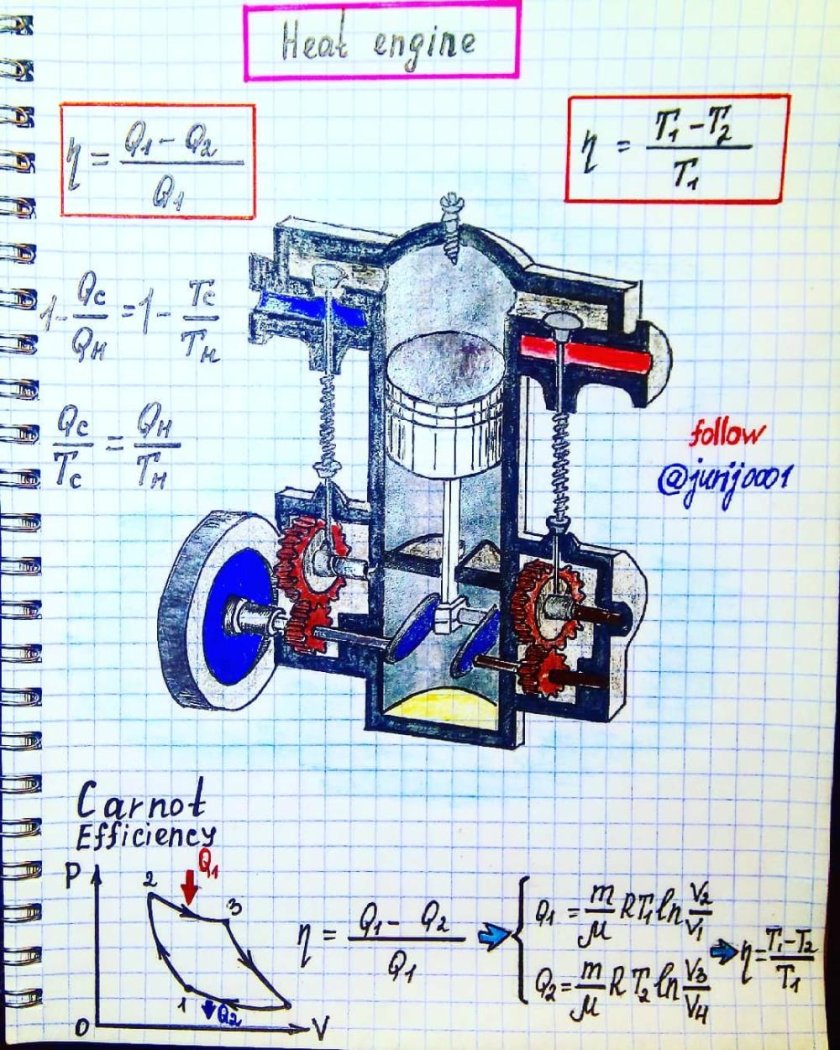 Heat engine
η = Q1 - Q2 / Q1
η = T1 - T2 / T1
1 - Qc / QH = 1 - Tc / TH
Qc / Tc = QH / TH
follow
@jurij0001
Carnot
Efficiency
P
Q1
2
3
1
Q2
0
V
η = Q1 - Q2 / Q1
Q1 = m / μ RT1 ln V2 / V1
Q2 = m / μ RT2 ln V3 / V4
η = T1 - T2 / T1